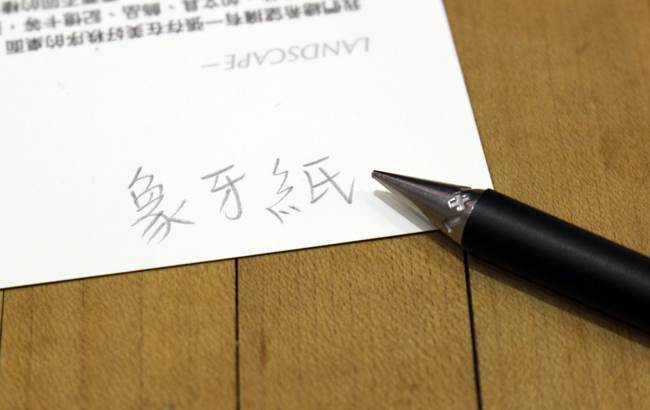 LANDSCAPE-
我們總希望擁有一張存在美好秩序的桌面
如文具、飾品、記憶卡等,
需要不同的
象牙紙